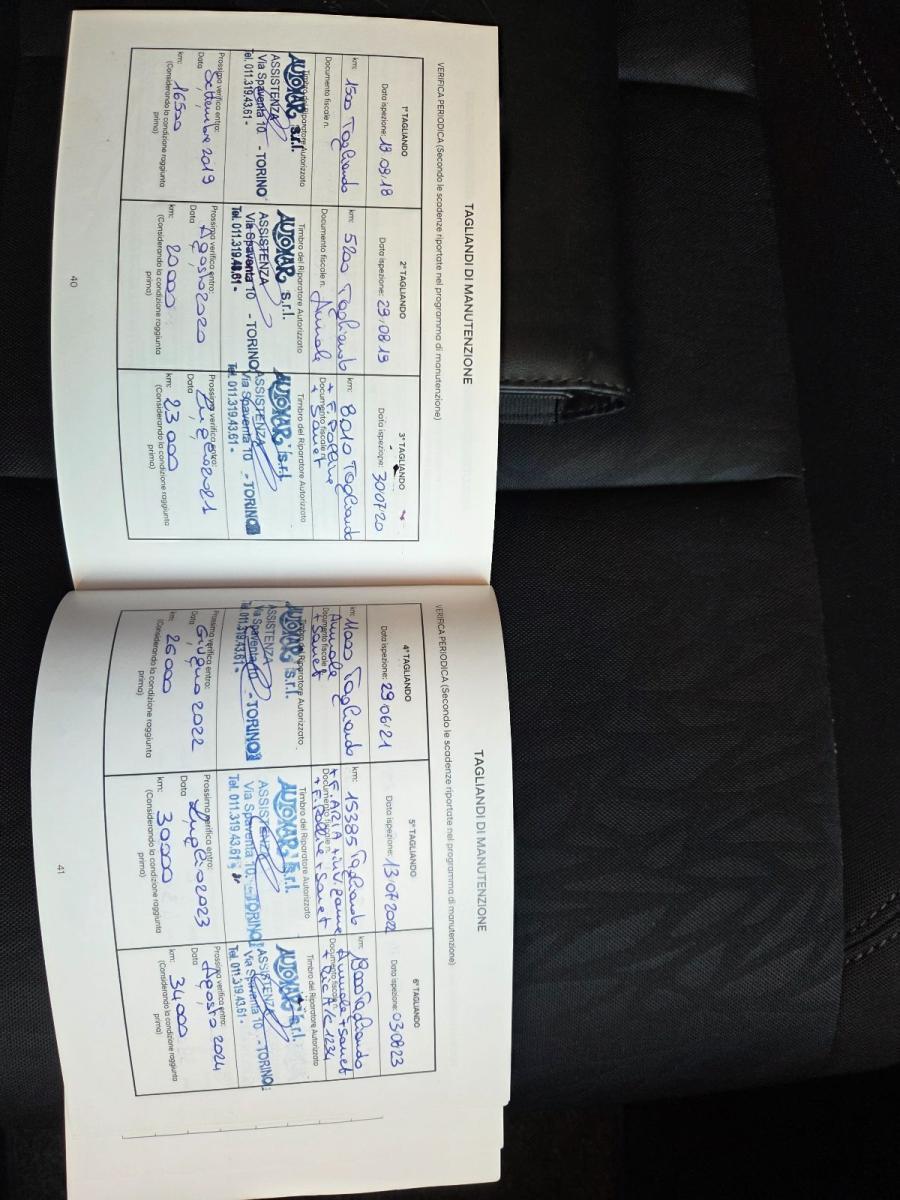 TAGLIANDI DI MANUTENZIONE
VERIFICA PERIODICA (Secondo le scadenze riportate nel programma di manutenzione)
1° TAGLIANDO
Data ispezione: 13.09.18
km: 1500 Tagliando
Documento fiscale n.
Timbro del Riparatore Autorizzato
AUTOMAR s.r.l.
ASSISTENZA
Via Spaventa 10 - TORINO
Tel. 011.319.43.61 -
Prossima verifica entro:
Data Settembre 2019
km: 16500
(Considerando la condizione raggiunta
prima)
2° TAGLIANDO
Data ispezione: 29.08.19
km: 5200 Tagliando
Documento fiscale n. Annuale
Timbro del Riparatore Autorizzato
AUTOMAR s.r.l.
ASSISTENZA
Via Spaventa 10 - TORINO
Tel. 011.319.43.61 -
Prossima verifica entro:
Data Agosto 2020
km: 20000
(Considerando la condizione raggiunta
prima)
3° TAGLIANDO
Data ispezione: 300720
km: 8010 Tagliando
+ F. Polline
Documento fiscale n.
+ Sanet
Timbro del Riparatore Autorizzato
AUTOMAR s.r.l.
ASSISTENZA
Via Spaventa 10 - TORINO
Tel. 011.319.43.61 -
Prossima verifica entro:
Data Luglio 2021
km: 23000
(Considerando la condizione raggiunta
prima)
40
TAGLIANDI DI MANUTENZIONE
VERIFICA PERIODICA (Secondo le scadenze riportate nel programma di manutenzione)
4° TAGLIANDO
Data ispezione: 29.06.21
km: Tagliando
Annuale
Documento fiscale n.
+ Sanet
Timbro del Riparatore Autorizzato
AUTOMAR s.r.l.
ASSISTENZA
Via Spaventa 10 - TORINO
Tel. 011.319.43.61 -
Prossima verifica entro:
Data Giugno 2022
km: 26000
(Considerando la condizione raggiunta
prima)
5° TAGLIANDO
Data ispezione: 13.07.2022
km: 15385 Tagliando
+ F. ARIA +
Documento fiscale n.
+ F. Polline + Sanet
Timbro del Riparatore Autorizzato
AUTOMAR s.r.l.
ASSISTENZA
Via Spaventa 10 - TORINO
Tel. 011.319.43.61 -
Prossima verifica entro:
Data Luglio 2023
km: 30000
(Considerando la condizione raggiunta
prima)
6° TAGLIANDO
Data ispezione: 030823
km: Tagliando
Annuale + sanet
Documento fiscale
+ Ric A/C 1234
Timbro del Riparatore Autorizzato
AUTOMAR s.r.l.
ASSISTENZA
Via Spaventa 10 - TORINO
Tel. 011.319.43.61 -
Prossima verifica entro:
Data Agosto 2024
km: 34000
(Considerando la condizione raggiunta
prima)
41